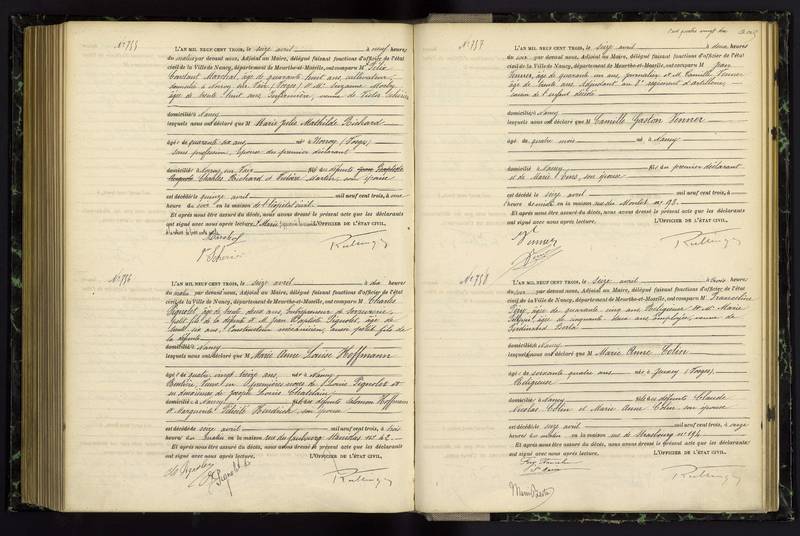 N° 755
L'AN MIL NEUF CENT TROIS, le seize avril à neuf heures
du matin par devant nous, Adjoint au Maire, délégué faisant fonctions d'officier de l'état
civil de la Ville de Nancy, département de Meurthe-et-Moselle, ont comparu M Félix
Constant Marchal, âgé de quarante huit ans, cultivateur,
domicilié à Noroy sur Vair (Vosges) et Mme Suzanne
âgée de trente huit ans, Infirmière, veuve de Victor Schérier
domiciliée à Nancy
lesquels nous ont déclaré que M Marie Julie Mathilde Richard
âgée de quarante six ans née à Noroy (Vosges)
sans profession, Epouse du premier déclarant
domiciliée à Noroy sur Vair fille des défunts
Charles Richard et Martin, son épouse
est décédée le quinze avril mil neuf cent trois, à onze
heures du soir en la maison de l'Hôpital civil
Et après nous être assuré du décès, nous avons dressé le présent acte que les déclarants
ont signé avec nous après lecture. L'OFFICIER DE L'ÉTAT CIVIL,
N° 756
L'AN MIL NEUF CENT TROIS, le seize avril à dix heures
du matin par devant nous, Adjoint au Maire, délégué faisant fonctions d'officier de l'état
civil de la Ville de Nancy, département de Meurthe-et-Moselle, ont comparu M Charles
Pignolet, âgé de trente deux ans, Entrepreneur de serrurerie
petit fils de la défunte et M Jean Baptiste Pignolet, âgé de
trente six ans, Constructeur mécanicien, aussi petit fils de
la défunte
domiciliés à Nancy
lesquels nous ont déclaré que M Marie Anne Louise Hoffmann
âgée de quatre vingt treize ans, née à Nancy
Rentière, Veuve en premières noces de Louis Pignolet et
en deuxièmes de Joseph Louis Chatelain
domiciliée à Nancy fille des défunts Salomon Hoffmann
et Marguerite Hendrick, son épouse
est décédée le seize avril mil neuf cent trois, à trois
heures du matin en la maison rue du faubourg Stanislas n° 42
Et après nous être assuré du décès, nous avons dressé le présent acte que les déclarants
ont signé avec nous après lecture. L'OFFICIER DE L'ÉTAT CIVIL,
N° 757
L'AN MIL NEUF CENT TROIS, le seize avril à deux heures
du soir par devant nous, Adjoint au Maire, délégué faisant fonctions d'officier de l'état
civil de la Ville de Nancy, département de Meurthe-et-Moselle, ont comparu M Jean
Venner, âgé de quarante un ans, journalier et M. Camille Venner
âgé de trente ans, Adjudant au 8e régiment d'artillerie,
cousin de l'enfant décédé
domiciliés à Nancy
lesquels nous ont déclaré que M Camille Gaston Venner
âgé de quatre mois né à Nancy
domicilié à Nancy fils du premier déclarant
et de Marie son épouse
est décédé le seize avril mil neuf cent trois, à
heures du matin en la maison rue du Montet n° 93
Et après nous être assuré du décès, nous avons dressé le présent acte que les déclarants
ont signé avec nous après lecture. L'OFFICIER DE L'ÉTAT CIVIL,
Venner
N° 758
L'AN MIL NEUF CENT TROIS, le seize avril à trois heures
du soir par devant nous, Adjoint au Maire, délégué faisant fonctions d'officier de l'état
civil de la Ville de Nancy, département de Meurthe-et-Moselle, ont comparu M Franceline
âgée de quarante cinq ans Religieuse et Mme Marie
âgée de cinquante deux ans employée, veuve de
Ferdinand
domiciliées à Nancy
lesquelles nous ont déclaré que M Marie Anne Colin
âgée de soixante quatre ans née à (Vosges)
Religieuse
domiciliée à Nancy fille des défunts Claude
Nicolas Colin et Marie Anne Colin son épouse
est décédée le seize avril mil neuf cent trois, à onze
heures du matin en la maison rue de Strasbourg n° 194
Et après nous être assuré du décès, nous avons dressé le présent acte que les déclarants
ont signé avec nous après lecture. L'OFFICIER DE L'ÉTAT CIVIL,